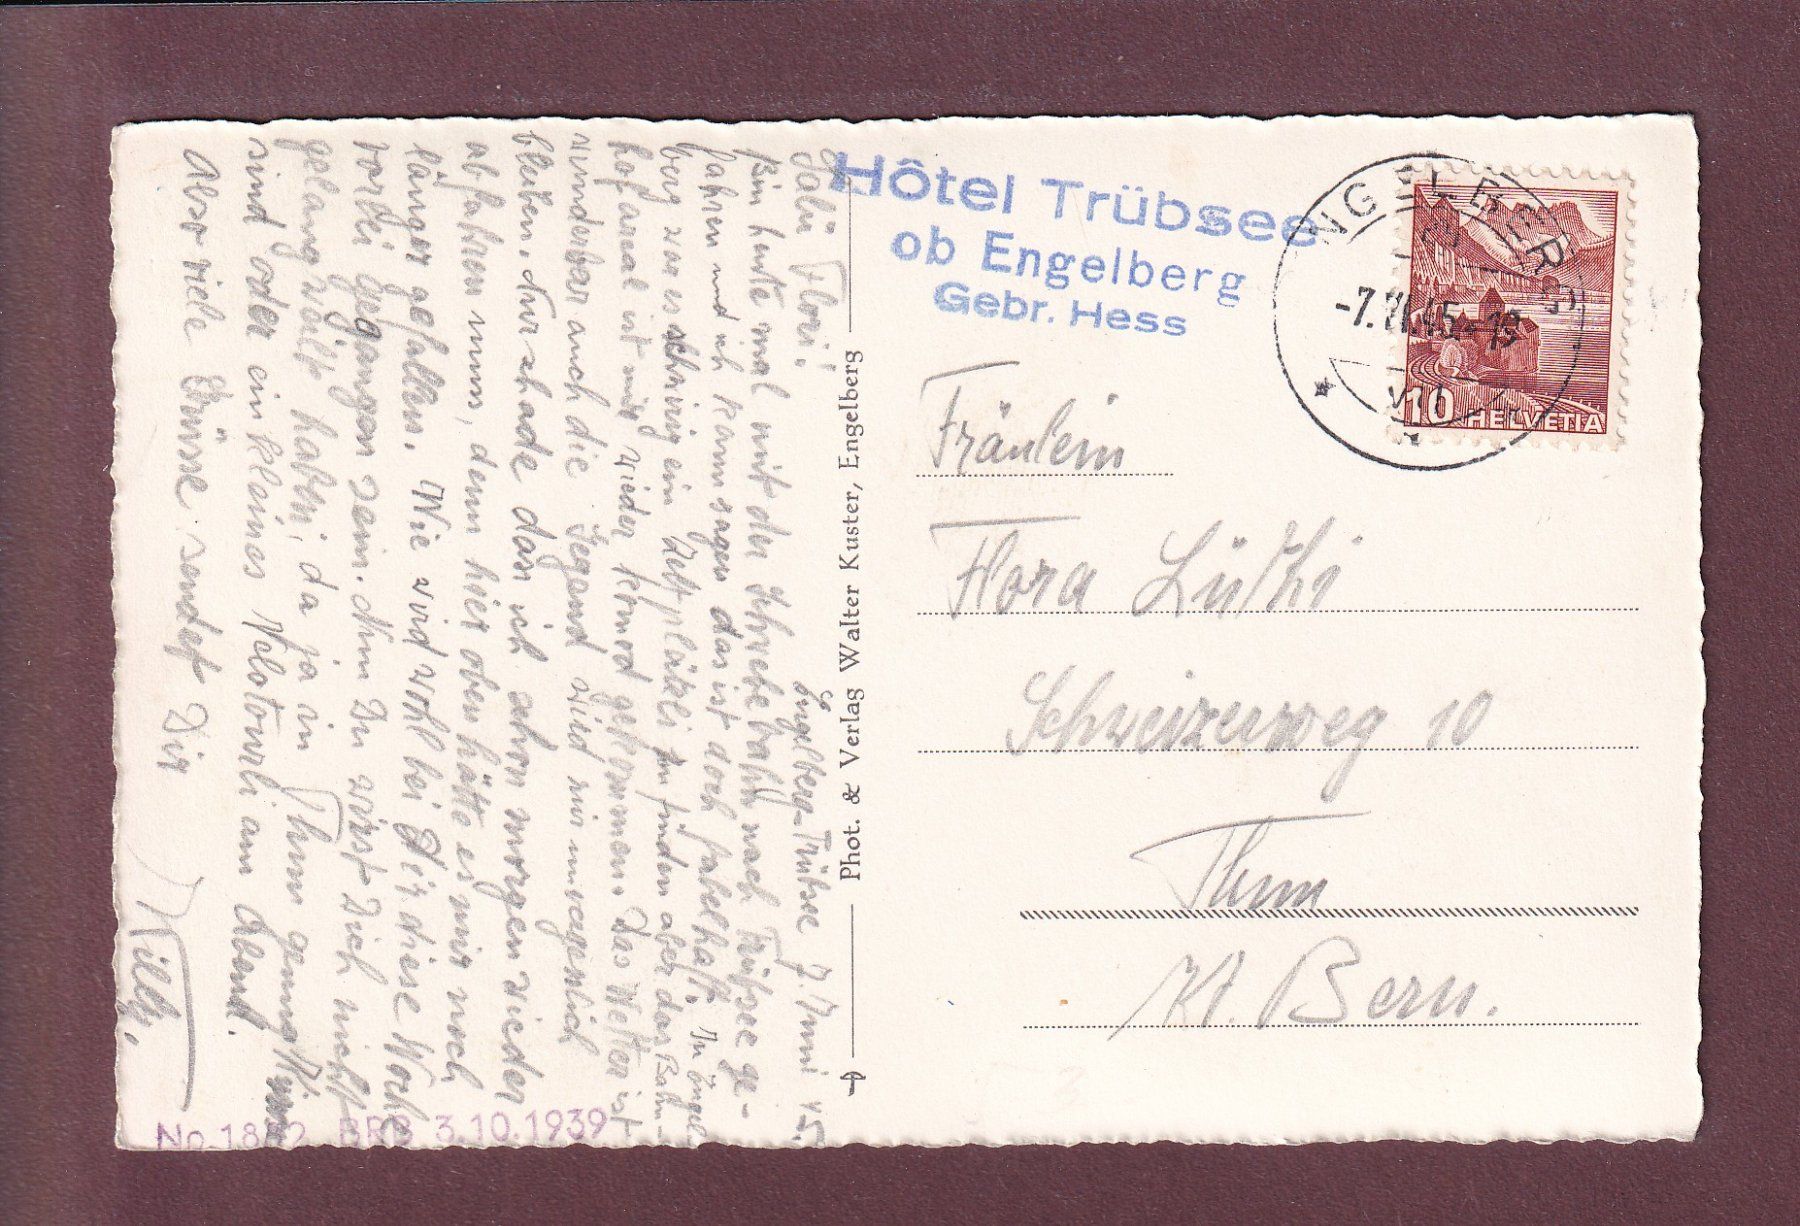 Engelberg-Trübsee 7. Juni 45.
Salü Flori.
Bin heute mal mit der Schwebebahn nach Trübsee ge-
fahren und ich kann sagen das ist doch fabelhaft. In Engel-
berg war es schwirig ein Zeltplätzli zu finden aber das Bahn-
hofareal ist mir wieder gekommen. Das Wetter ist
wunderbar auch die Gegend wird mir unvergesslich
bleiben. Nur schade dass ich schon morgen wieder
abfahren muss, denn hier oben hätte es mir noch
länger gefallen. Wie wird wohl bei Dir diese Woche
vorbei gegangen sein. Nun Du wirst Dich nicht
gelangweilt haben, da ja in Thun genug
sind oder ein kleines Velotourli am Abend.
Also viele Grüsse sendet Dir
Willy.
No. 1812 BRB 3.10.1939
Phot. & Verlag Walter Kuster, Engelberg
Hôtel Trübsee
ob Engelberg
Gebr. Hess
ENGELBERG
-7.VI.45-19
VII
10 HELVETIA
Fräulein
Flora Lüthi
Schweizerweg 10
Thun
Kt. Bern.